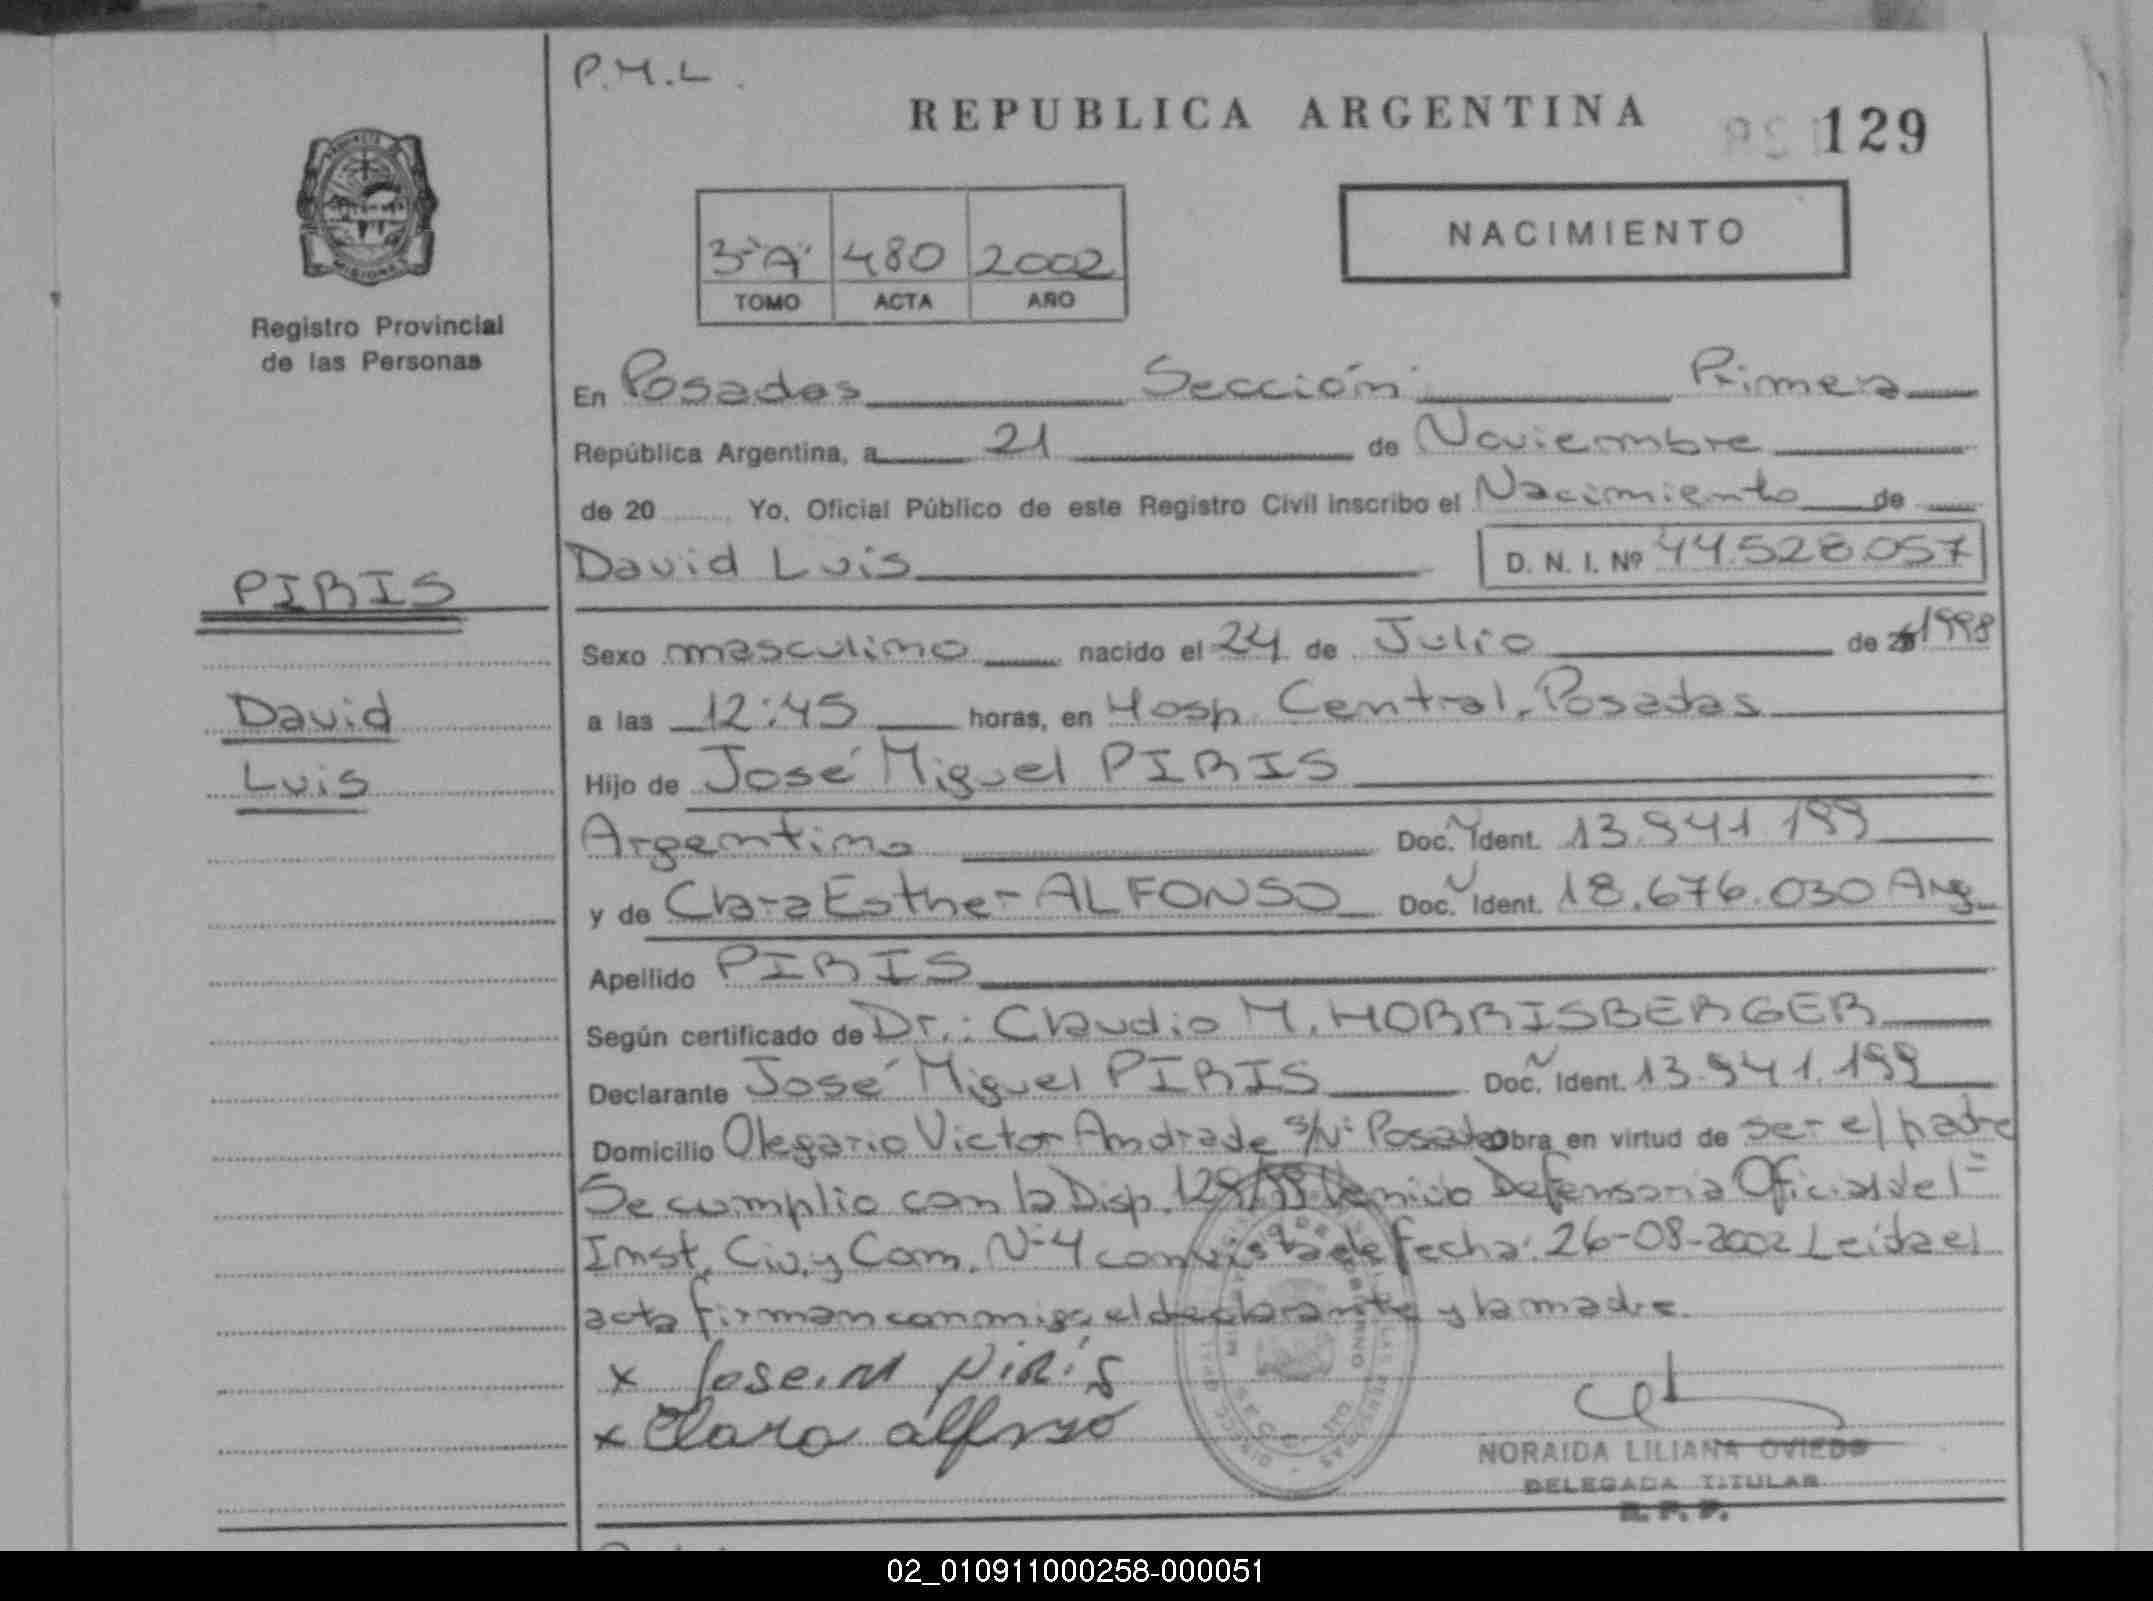 P.M.L.
REPUBLICA ARGENTINA
129
3º "A" 480 2002
TOMO ACTA AÑO
NACIMIENTO
Registro Provincial
de las Personas
En Posadas Sección Primera
República Argentina, a 21 de Noviembre
de 20 Yo, Oficial Público de este Registro Civil inscribo el Nacimiento de
David Luis D. N. I. Nº 44.528.057
PIRIS
Sexo masculino nacido el 24 de Julio de 1998
David
a las 12:45 horas, en Hosp. Central, Posadas
Luis
Hijo de José Miguel PIRIS
Argentino Doc. Ident. 13.941.199
y de Clara Esther ALFONSO Doc. Ident. 18.676.030 Arg.
Apellido PIRIS
Según certificado de Dr.: Claudio M. HORRISBERGER
Declarante José Miguel PIRIS Doc. Ident. 13.941.199
Domicilio Olegario Victor Andrade s/Nº Posadas obra en virtud de ser el padre
Se cumplio con la Disp. Defensoria Oficial del
Inst. Civ. y Com. Nº 4 con vista de fecha: 26-08-2002 Leida el
acta firman conmigo el declarante y la madre.
x Jose. M Piris
x Clara alfonso
NORAIDA LILIANA OVIEDO
DELEGADA TITULAR
R. P. P.
02_010911000258-000051